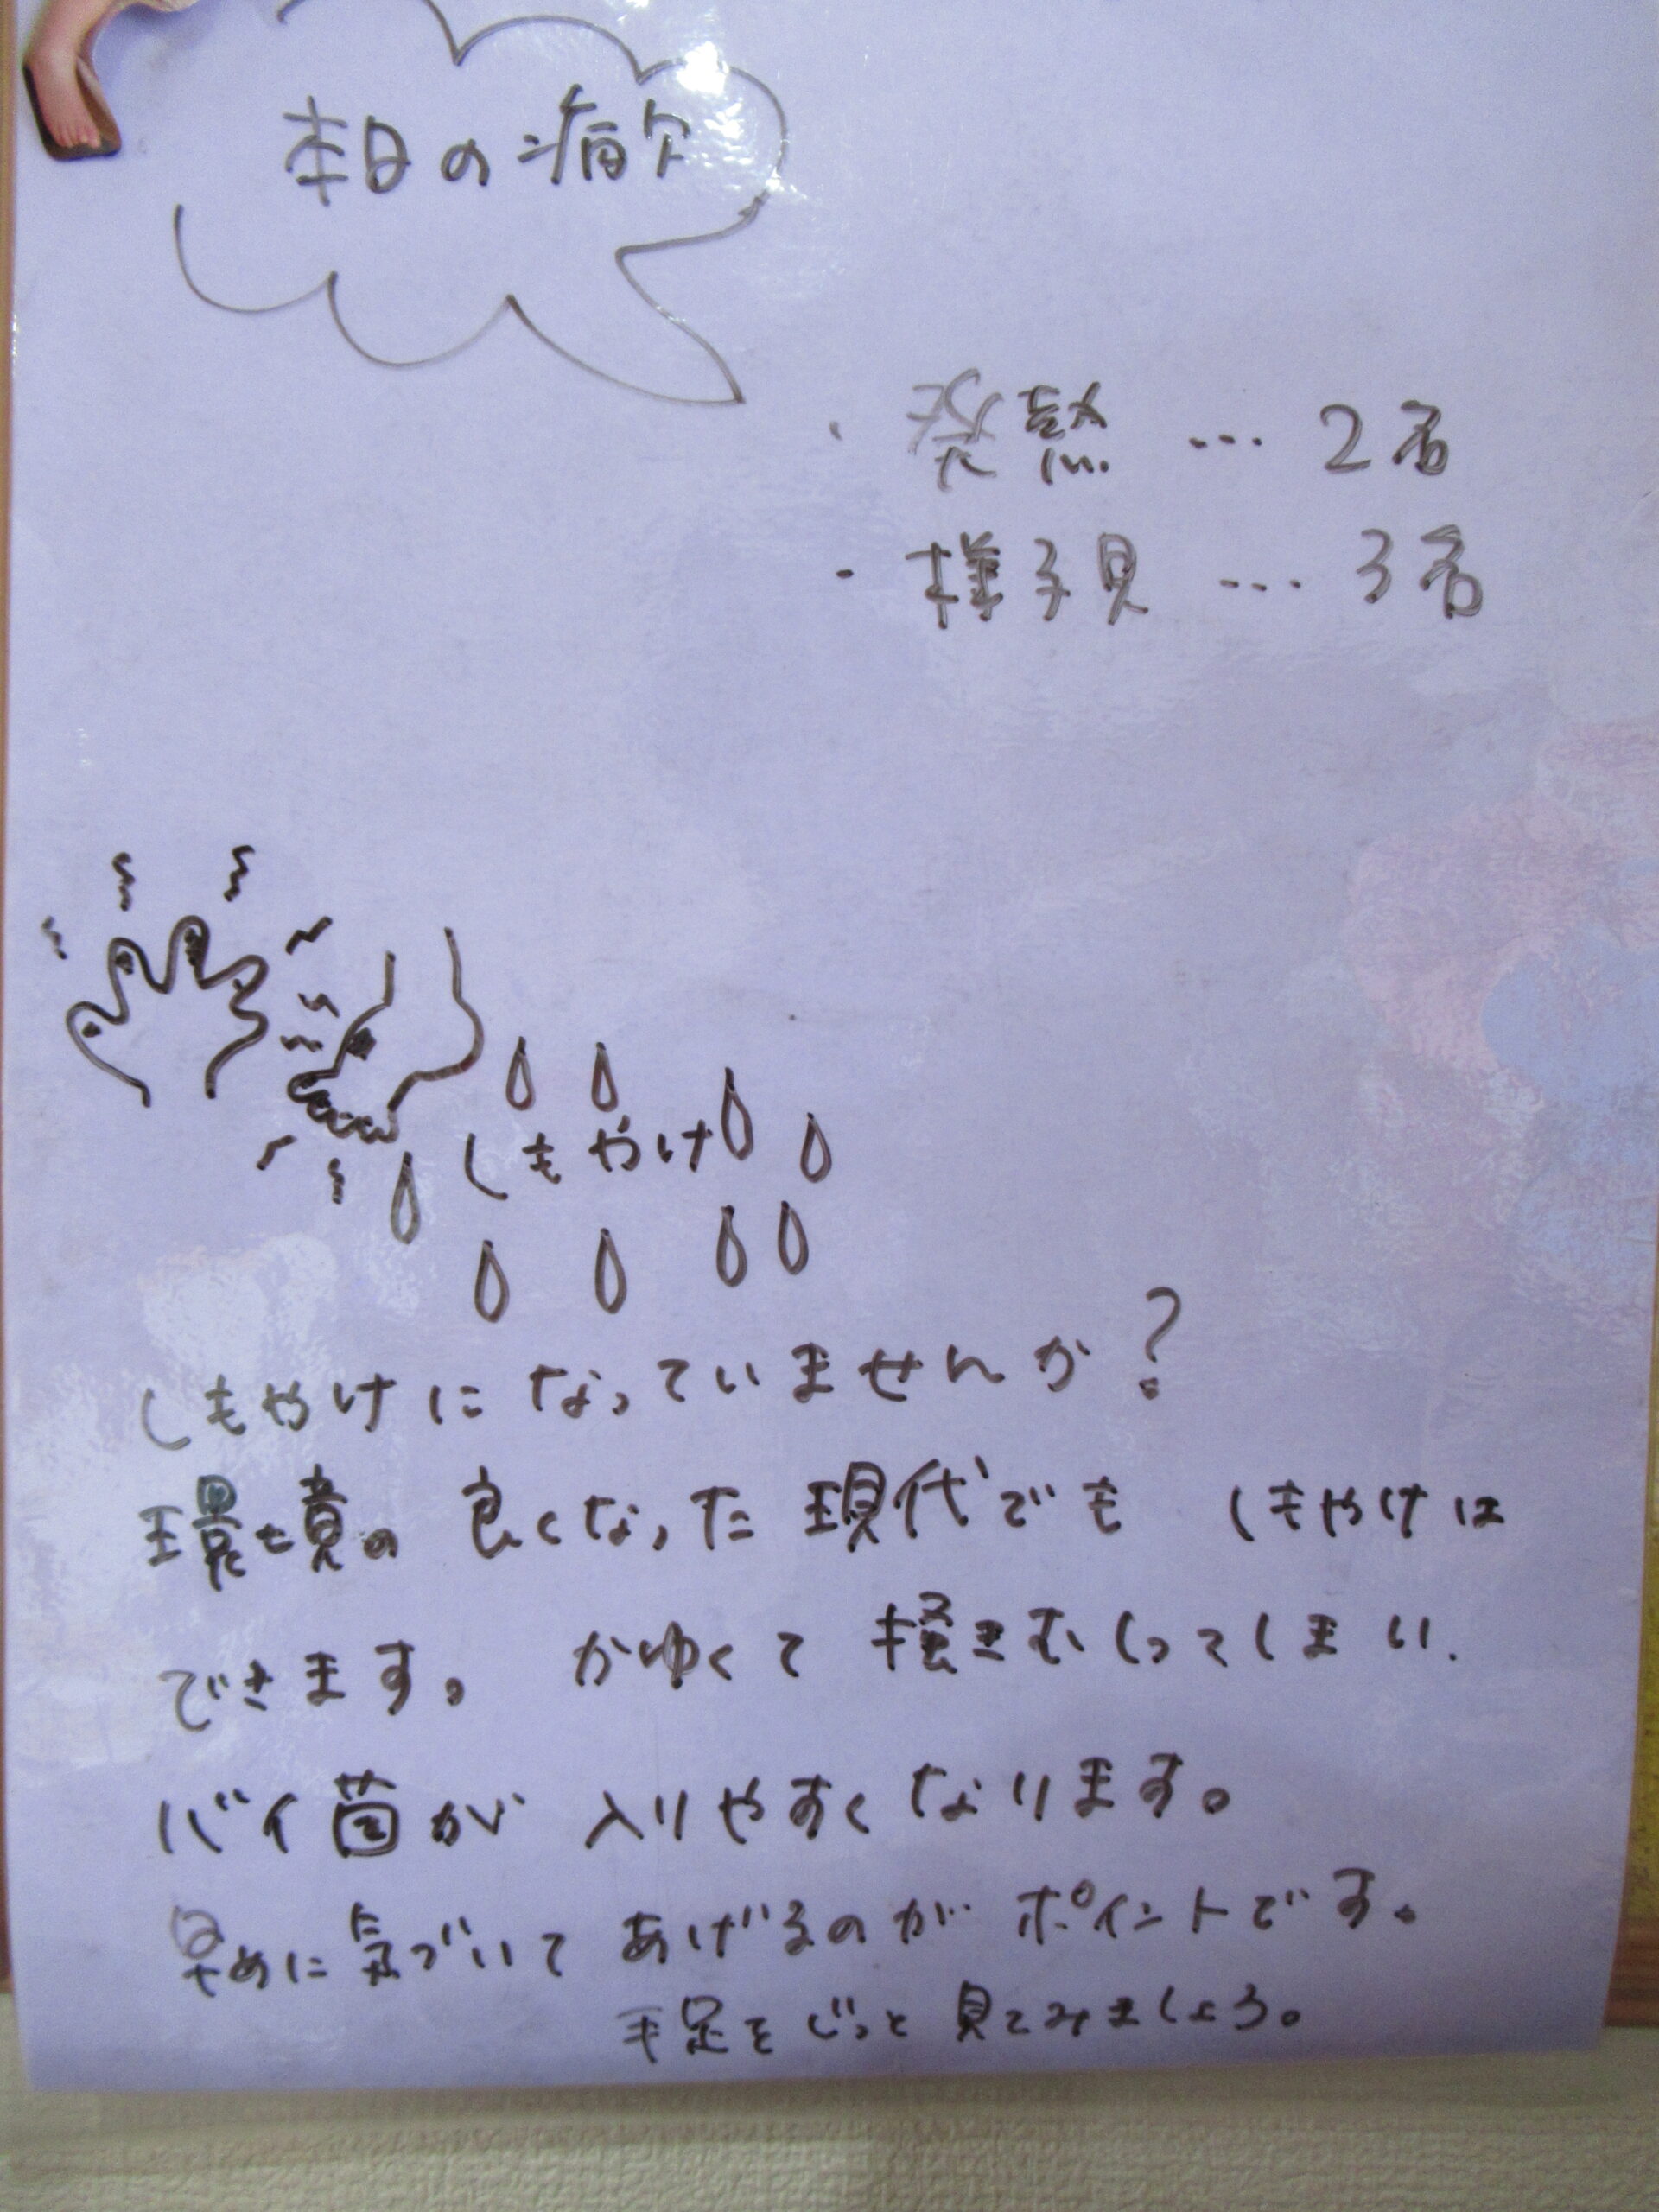 本日の病欠
・発熱…2名
・様子見…3名
しもやけ
しもやけになっていませんか?
環境の良くなった現代でも しもやけは
できます。かゆくて掻きむしってしまい、
バイ菌が入りやすくなります。
早めに気づいてあげるのがポイントです。
手足をじっと見てみましょう。